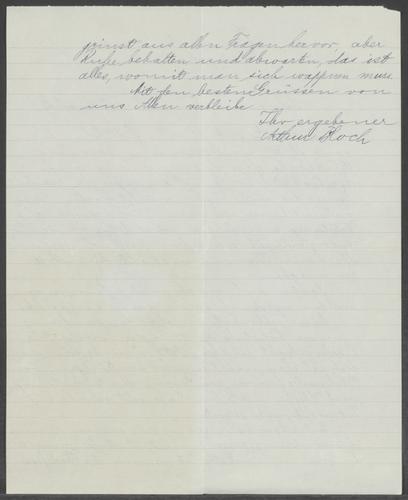 grinst aus allen Fragen hervor, aber
Ruhe behalten und abwarten, das ist
alles, womit man sich wappnen muss.
Mit den besten Grüssen von
uns Allen verbleibe
Ihr ergebener
Arthur Bloch